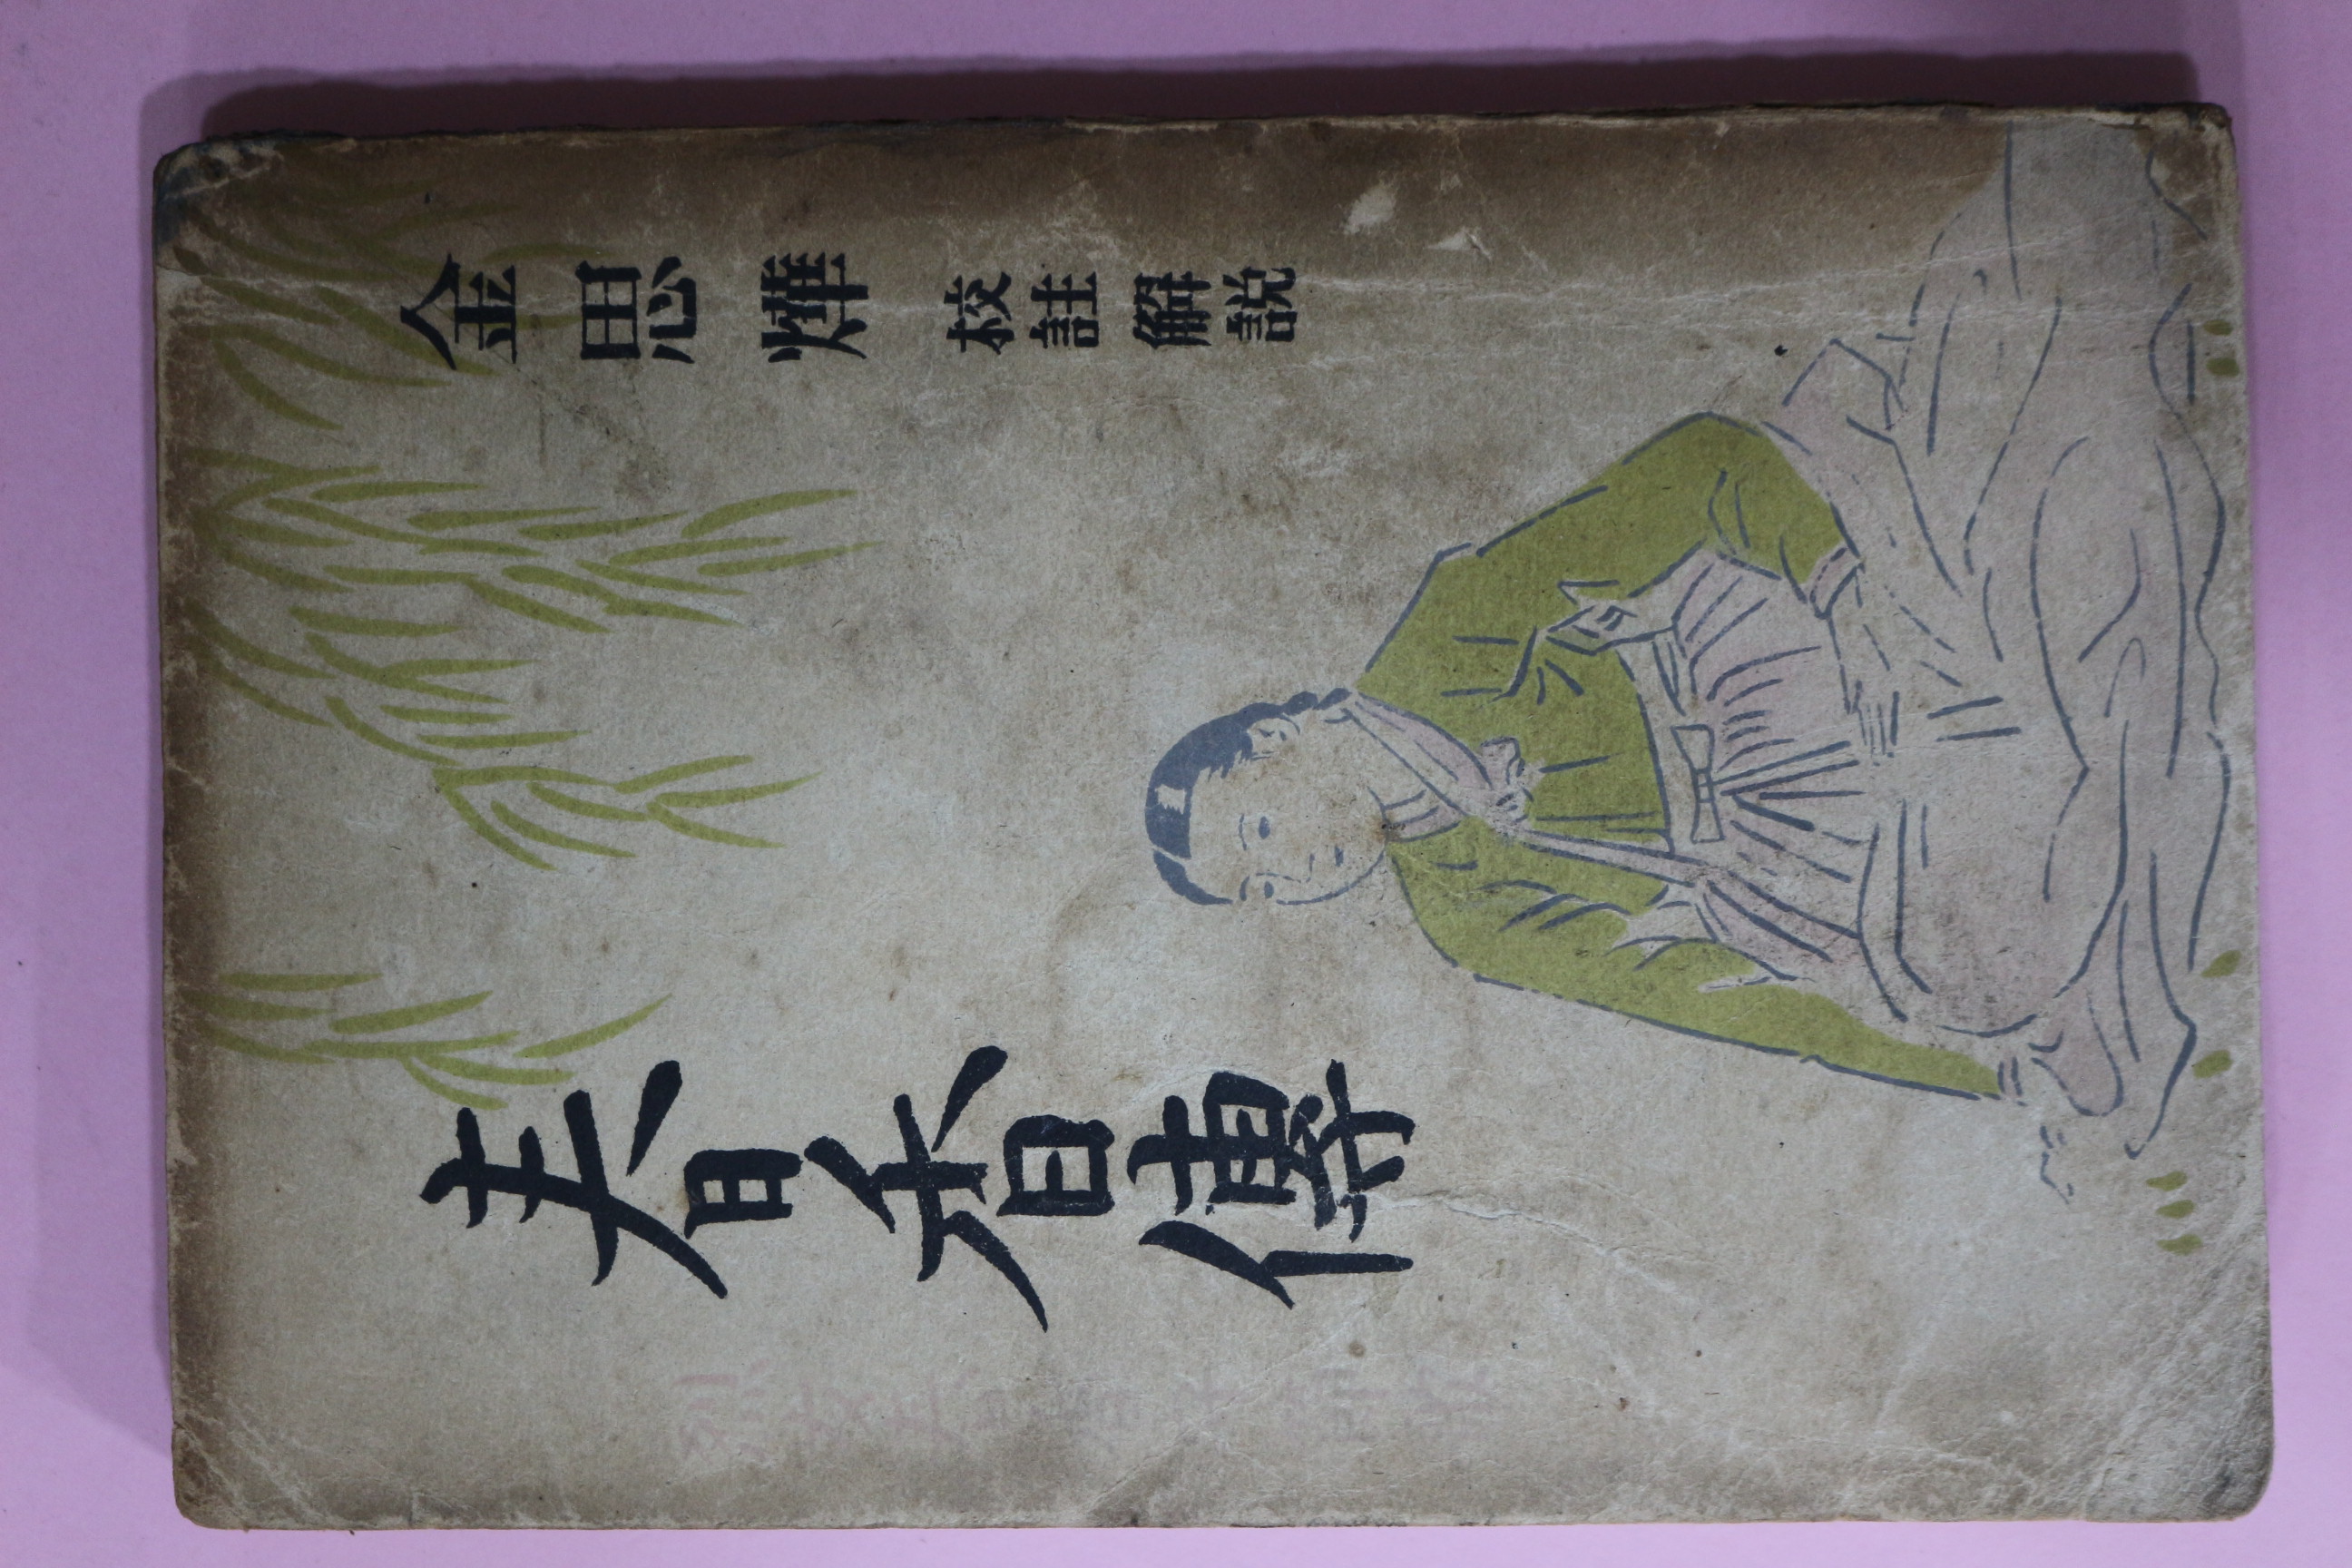 金思燁 校註 解説
春香傳